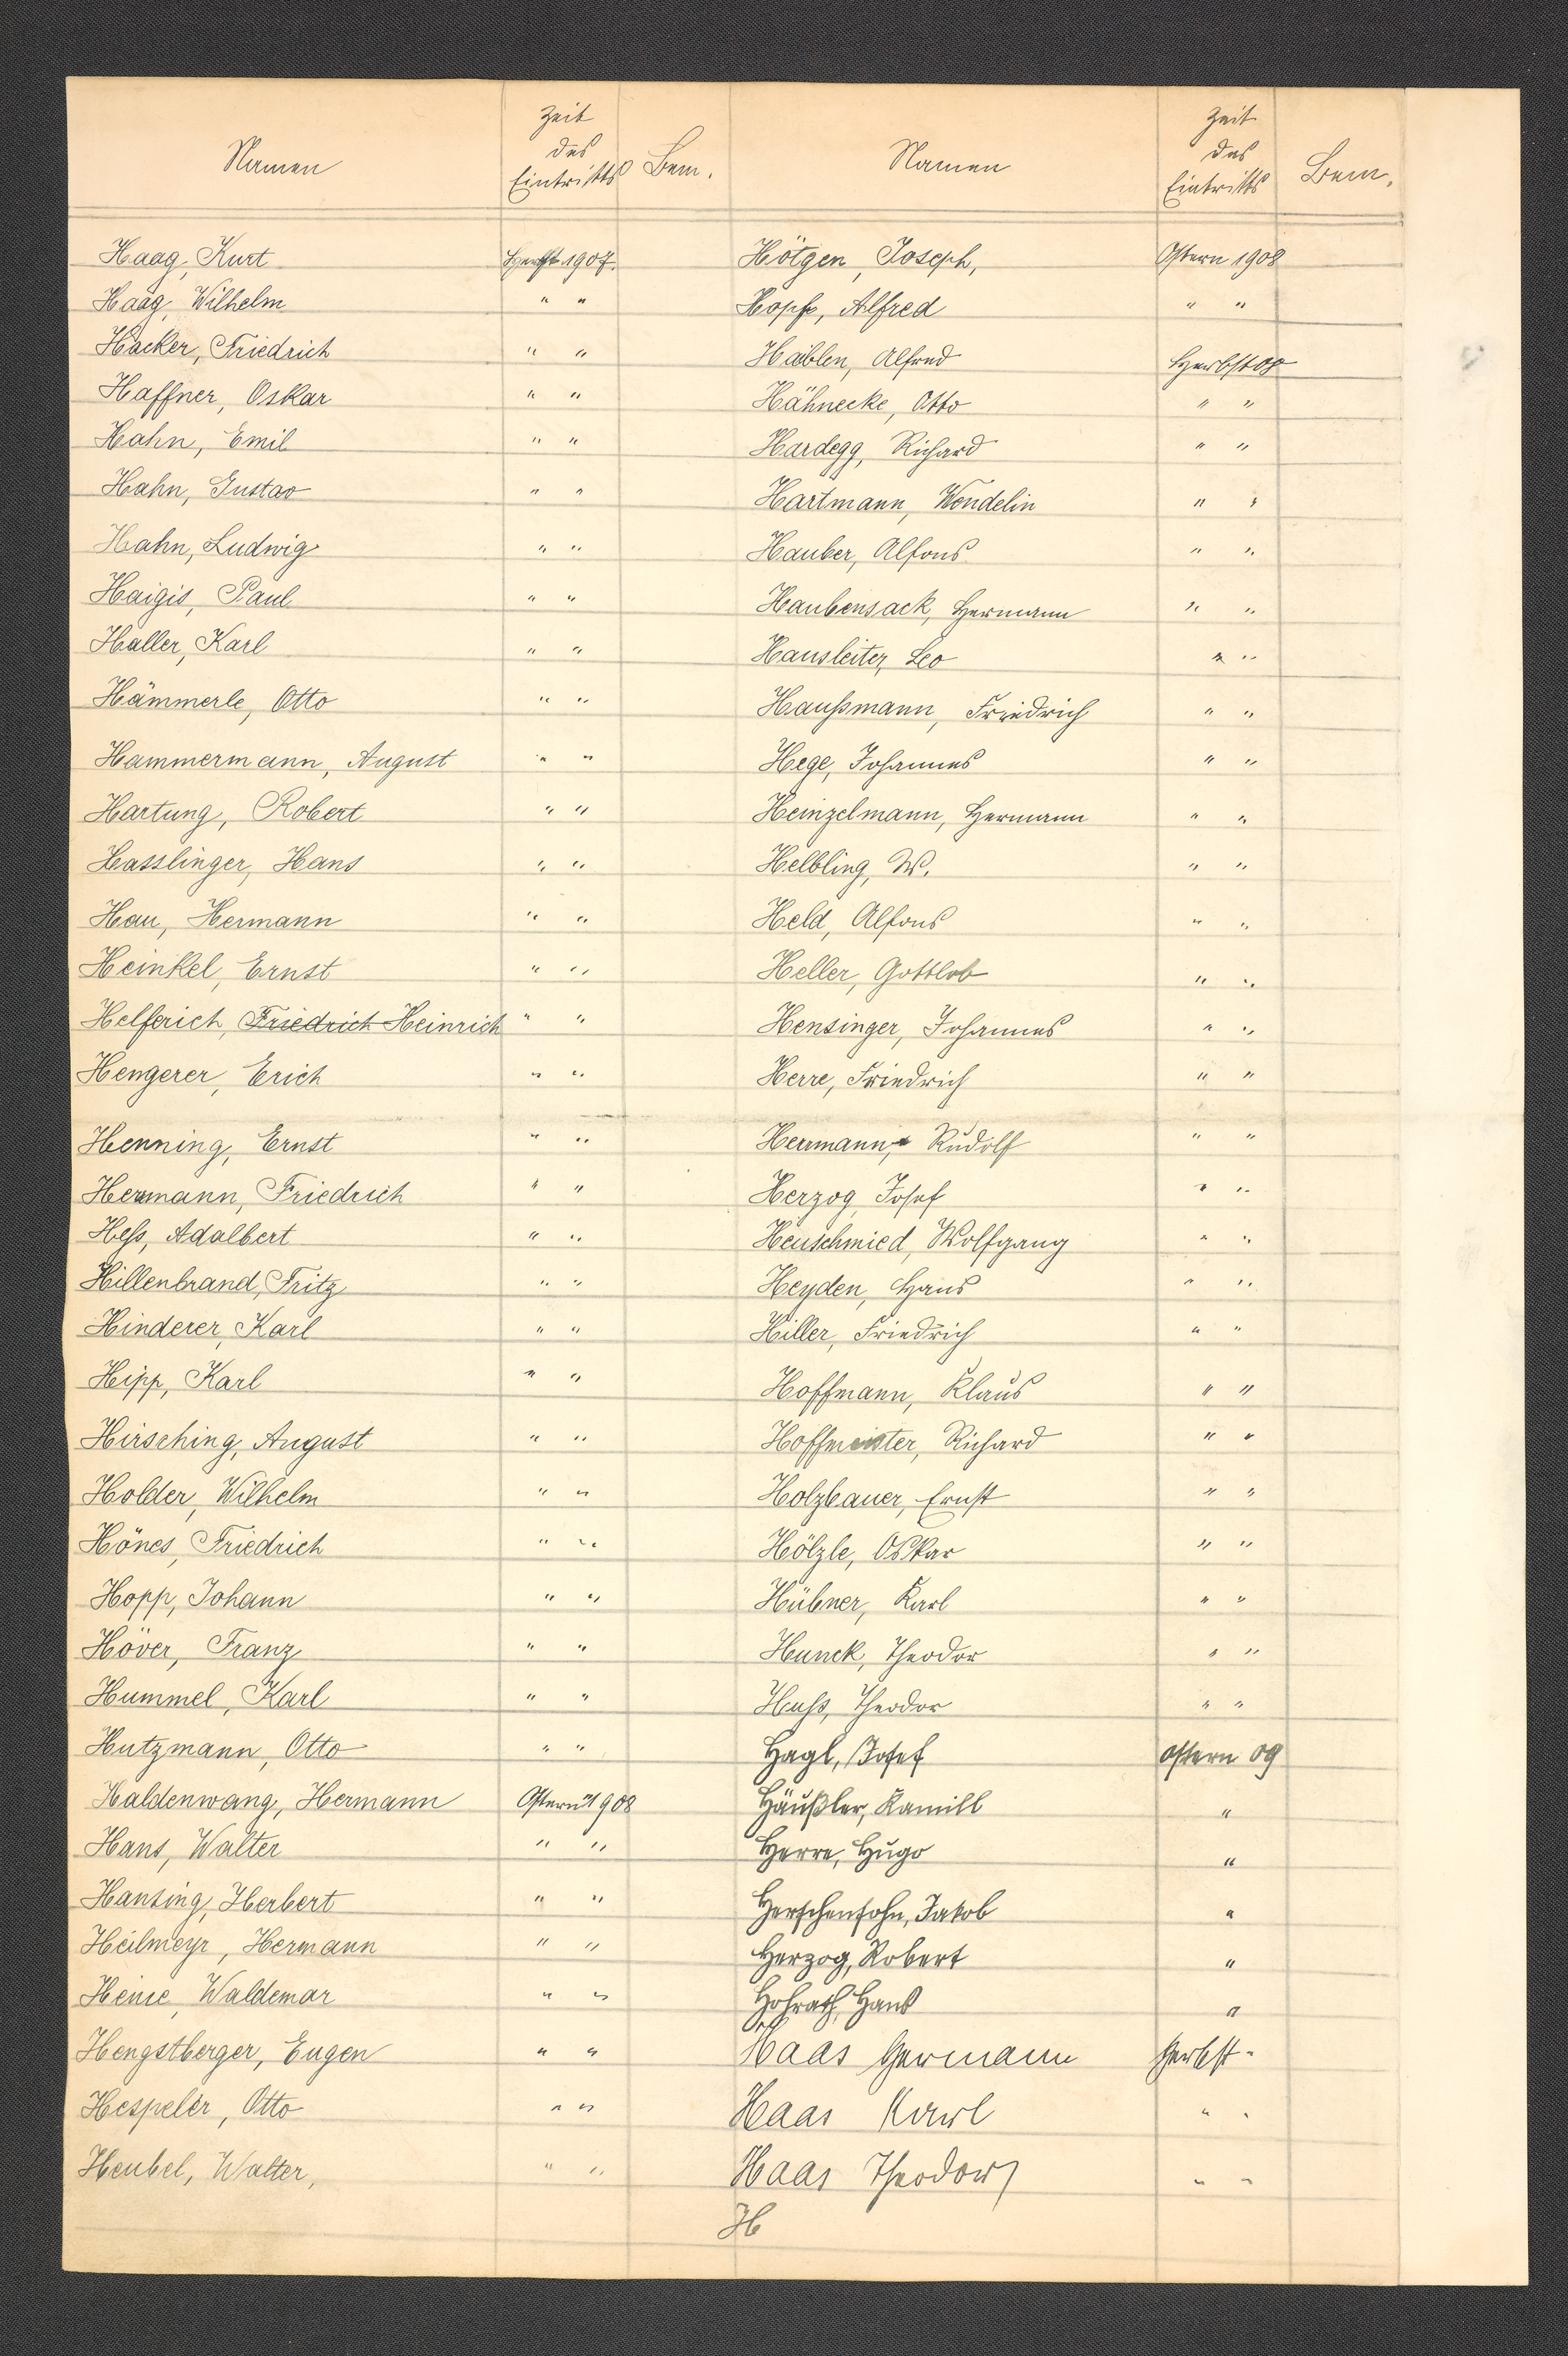 Namen Zeit des Eintritts Bem.
Haag, Kurt Herbst 1907.
Haag, Wilhelm " "
Hacker, Friedrich " "
Haffner, Oskar " "
Hahn, Emil " "
Hahn, Gustav " "
Hahn, Ludwig " "
Haigis, Paul " "
Haller, Karl " "
Hämmerle, Otto " "
Hammermann, August " "
Hartung, Robert " "
Hasslinger, Hans " "
Hau, Hermann " "
Heinkel, Ernst " "
Helferich, Friedrich Heinrich " "
Hengerer, Erich " "
Henning, Ernst " "
Hermann, Friedrich " "
Heß, Adalbert " "
Hillenbrand, Fritz " "
Hinderer, Karl " "
Hipp, Karl " "
Hirsching, August " "
Holder, Wilhelm " "
Hönes, Friedrich " "
Hopp, Johann " "
Höver, Franz " "
Hummel, Karl " "
Hutzmann, Otto " "
Haldenwang, Hermann Ostern 1908
Hans, Walter " "
Hansing, Herbert " "
Heilmeyr, Hermann " "
Waldemar " "
Hengstberger, Eugen " "
Hespeler, Otto " "
Heubel, Walter, " "
Namen Zeit des Eintritts Bem.
Hötgen, Joseph, Ostern 1908
Hopf, Alfred " "
Häblen, Alfred Herbst 08
Hähnecke, Otto " "
Hardegg, Richard " "
Hartmann, Wendelin " "
Hauber, Alfons " "
Haubensack, Hermann " "
Hausleiter, Leo " "
Haußmann, Friedrich " "
Hege, Johannes " "
Heinzelmann, Hermann " "
Helbling, W. " "
Held, Alfons " "
Heller, Gottlob " "
Hensinger, Johannes " "
Herre, Friedrich " "
Herrmann, Rudolf " "
Herzog, Josef " "
Heuschmied, Wolfgang " "
Heyden, Hans " "
Hiller, Friedrich " "
Hoffmann, Klaus " "
Hoffmeister, Richard " "
Holzbauer, Ernst " "
Hölzle, Oskar " "
Hübner, Karl " "
Hunck, Theodor " "
Huß, Theodor " "
Hagl, Josef Ostern 09
Häußler, Kamill "
Herre, Hugo "
Herschensohn, Jakob "
Herzog, Robert "
Hohrath, Hans "
Haas Hermann Herbst "
Haas Karl " "
Haas Theodor " "
H